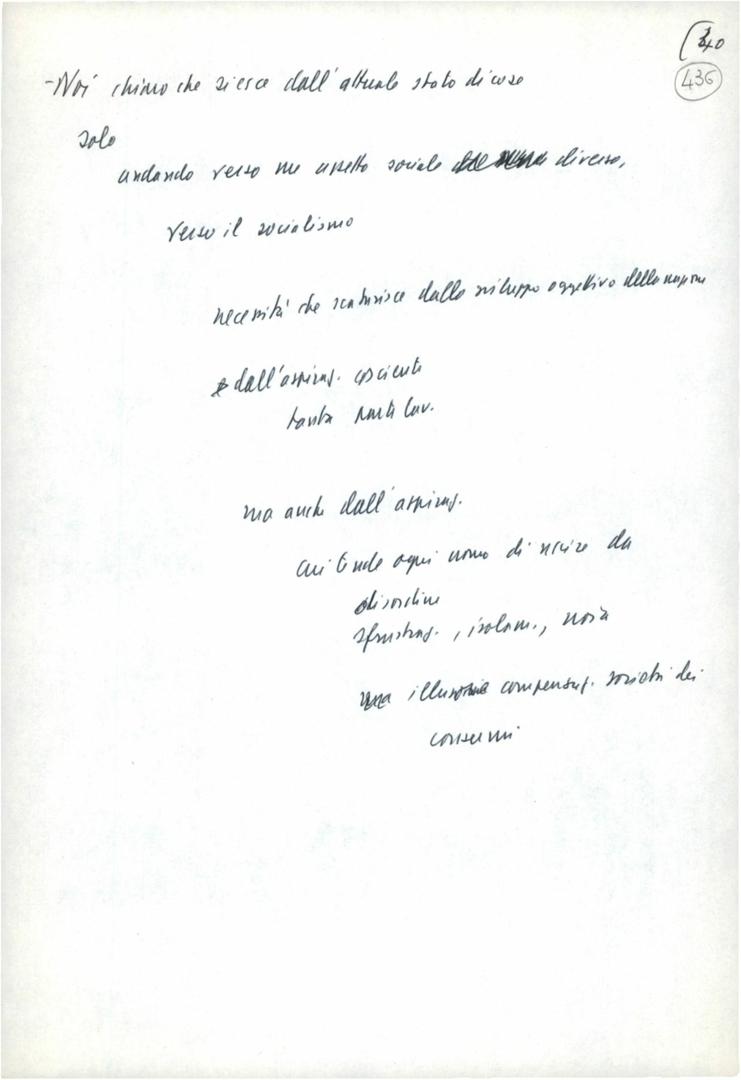 40
436
- Noi diciamo che si esce dall'attuale stato di cose
solo
andando verso un assetto sociale diverso,
verso il socialismo
necessità che scaturisce dallo sviluppo oggettivo della
dall'aspiraz. cosciente
tanta parte lav.
ma anche dall'aspiraz.
cui tende ogni uomo di uscire da
disordine
sfruttam., isolam., noia
una illusoria compensaz. società dei
consumi